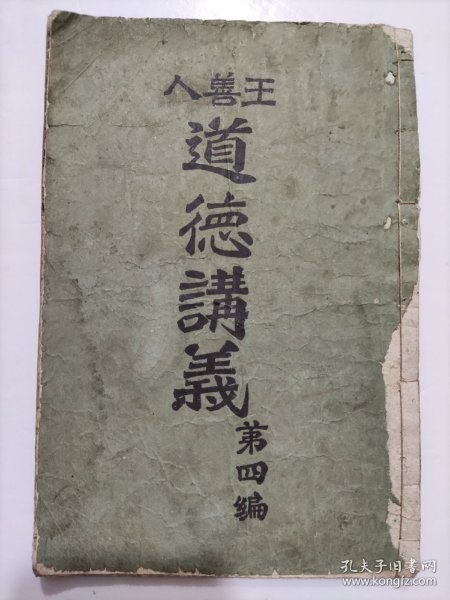 王善人
道德講義
第四編
孔夫子旧书网
www.kongfz.com